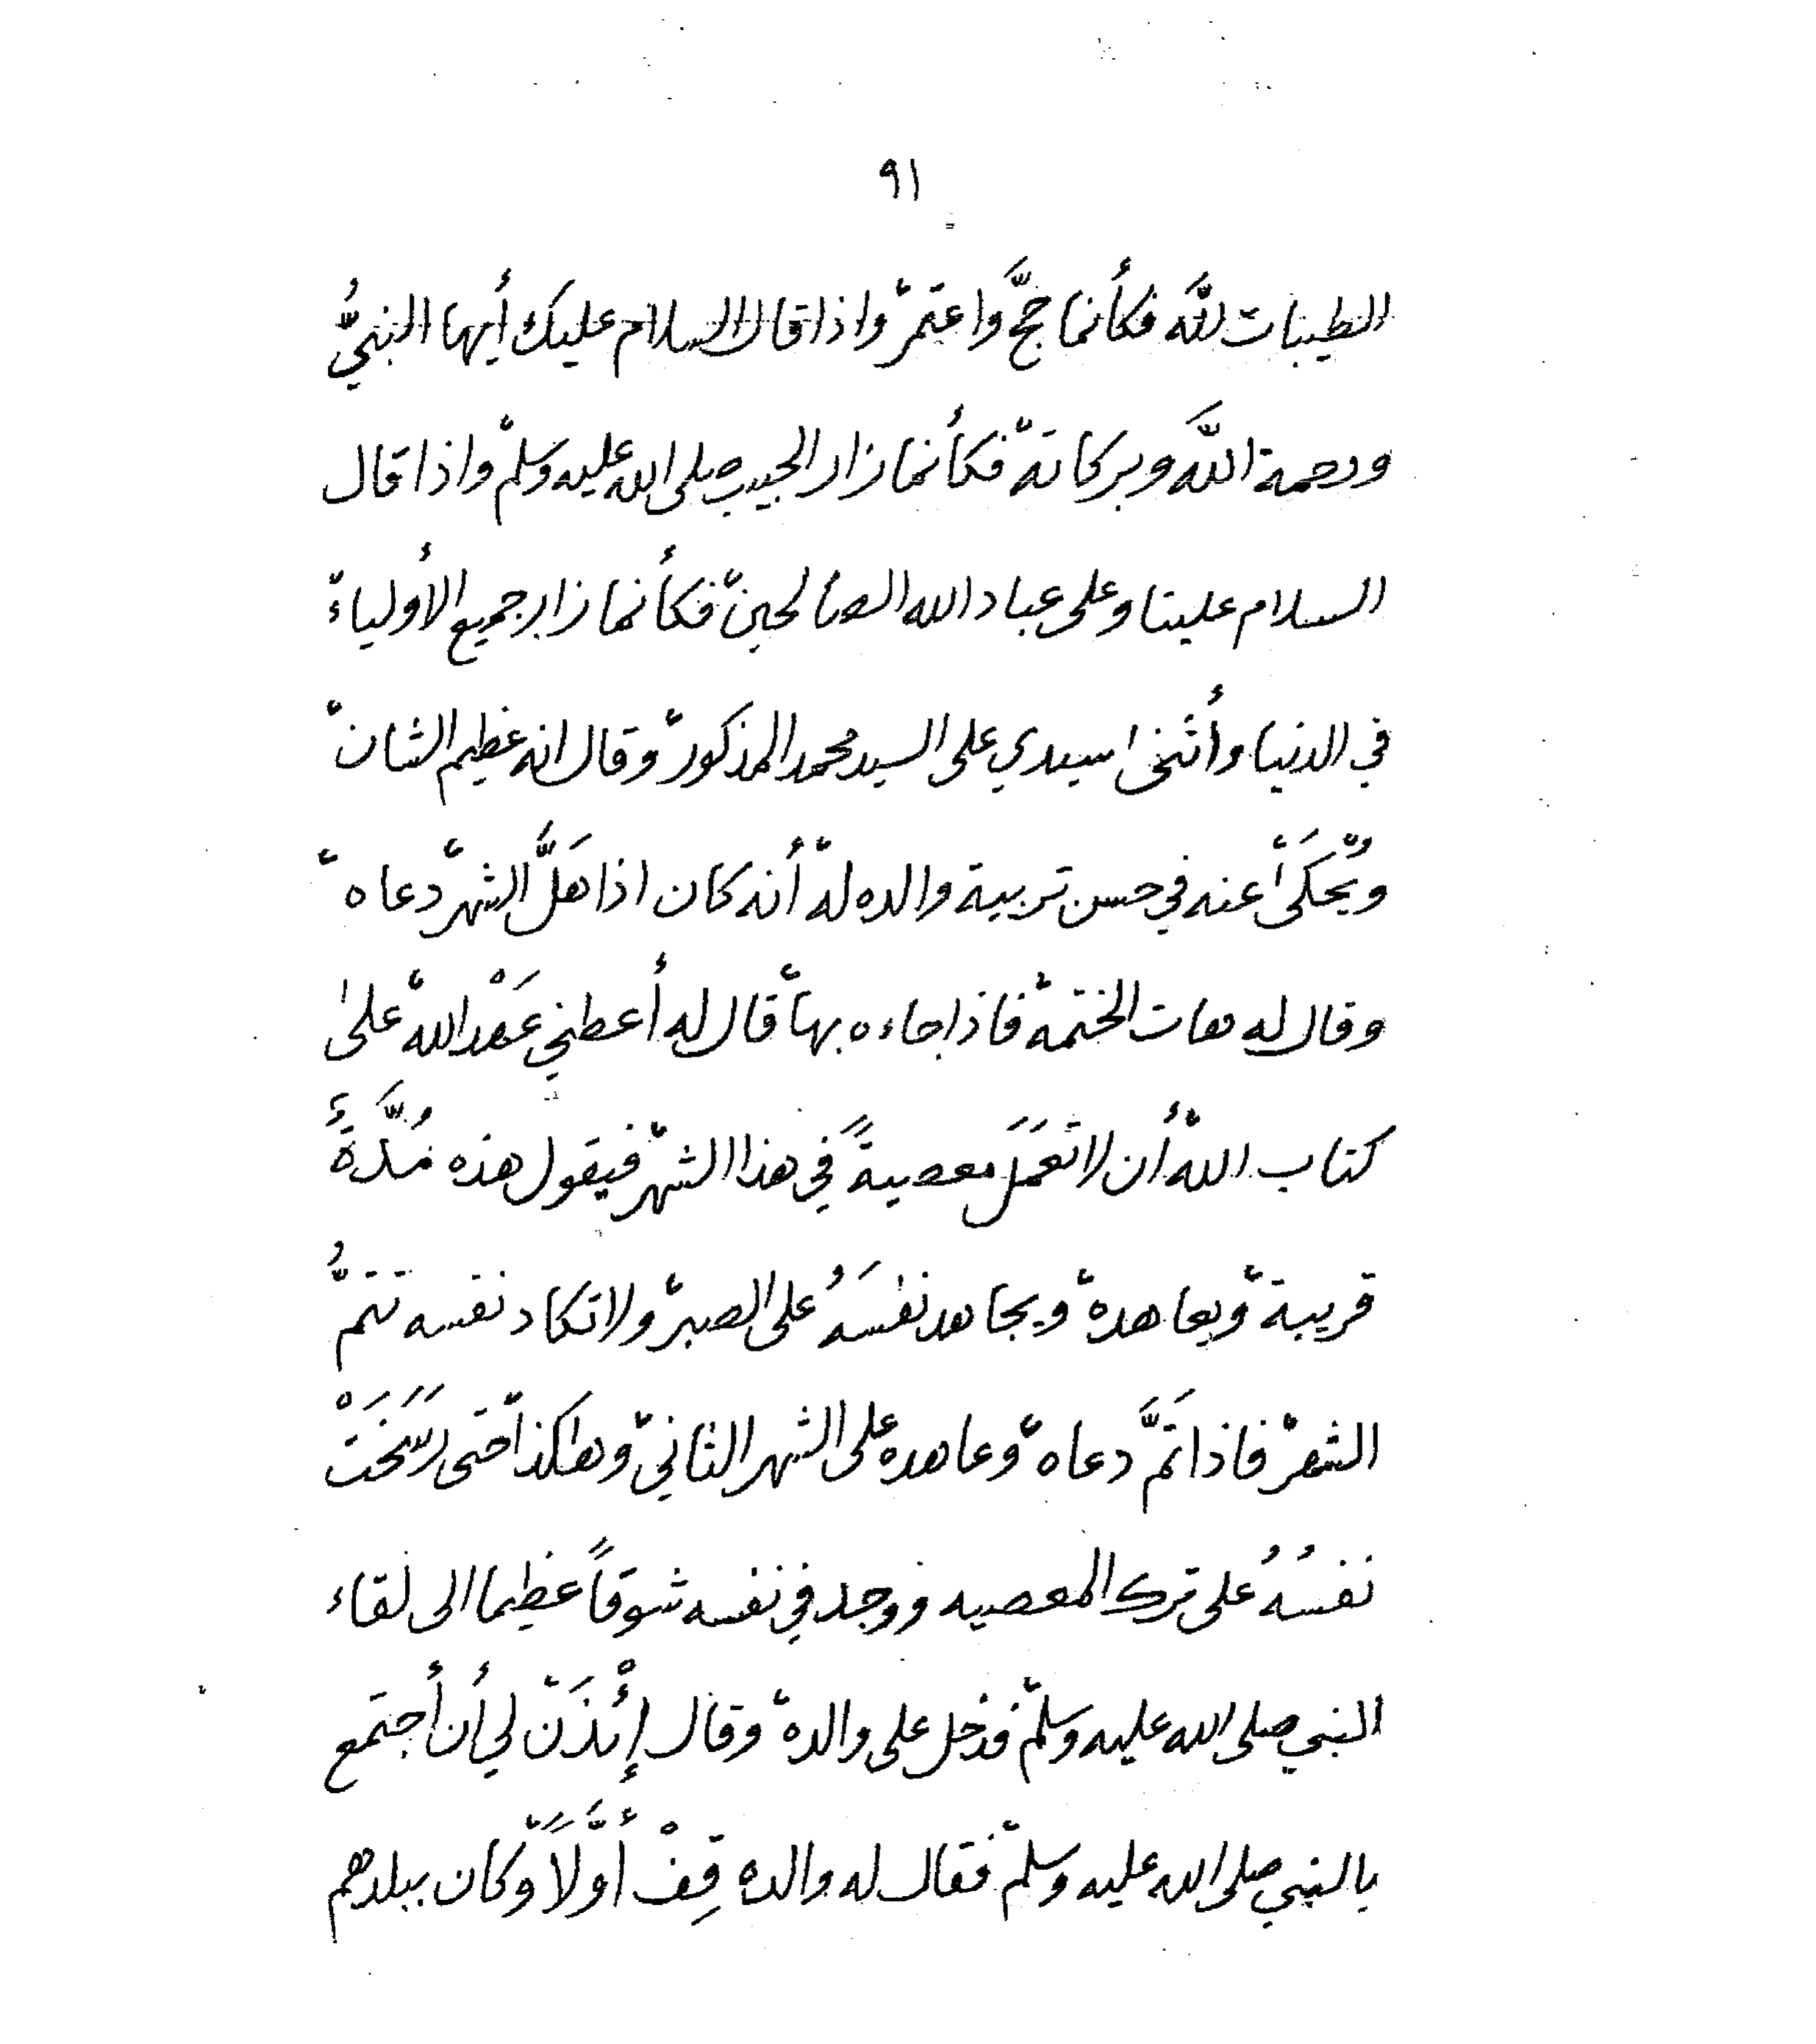 ٩١
الطيبات للَّه فكأنما حجَّ واعتمر واذا قال السلام عليك أيها النبيُّ
ورحمة اللَّه وبركاته فكأنما زار الحبيب صلى الله عليه وسلم واذا قال
السلام علينا وعلى عباد الله الصالحين فكأنما زار جميع الأولياء
في الدنيا وأثنى سيدي على السيد محمد المذكور وقال انه عظيم الشان
ويُحكَى عنه في حسن تربية والده له أنه كان اذا هَلَّ الشهر دعاه
وقال له هات الختمة فاذا جاءه بها قال له أعطني عَهْد الله على
كتاب الله أن لا تعمَلَ معصيةً في هذا الشهر فيقول هذه مُدَّةٌ
قريبة ويعاهده ويجاهد نفسَهُ على الصبر ولا تكاد نفسه تتمُّ
الشهر فاذا تَمَّ دعاه وعاهده على الشهر الثاني وهاكذا حتى رَسَخَتْ
نفسُهُ على ترك المعصيه ووجد في نفسه شوقاً عظيما الى لقاء
النبي صلى الله عليه وسلم فدخل على والده وقال إئْذَنْ لي أن أجتمع
بالنبي صلى الله عليه وسلم فقال له والده قِفْ أوَّلاً وكان ببلدهم